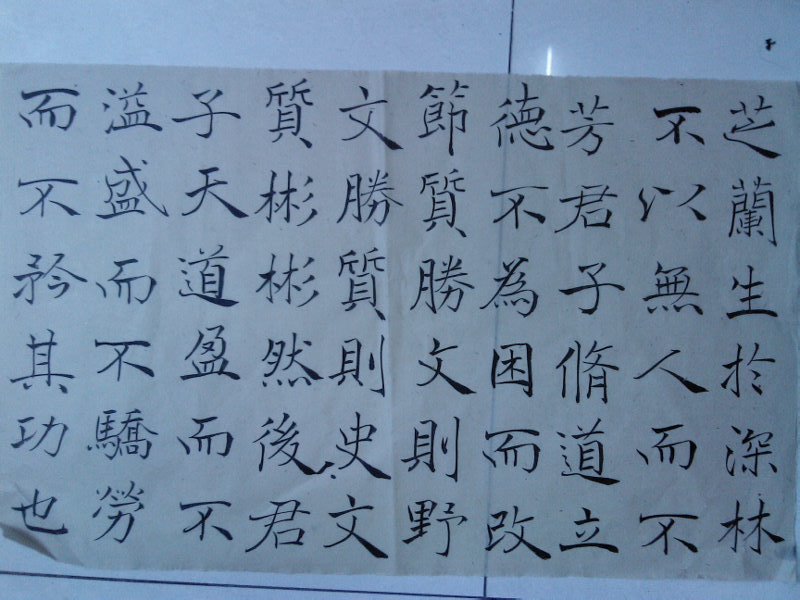 芝蘭生於深林
不以無人而不
芳君子脩道立
德不為困而改
節質勝文則野
文勝質則史文
質彬彬然後君
子天道盈而不
溢盛而不驕勞
而不矜其功也